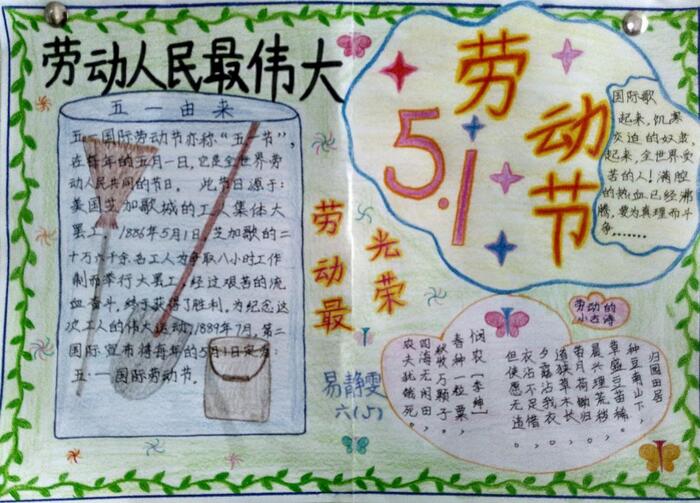 劳动人民最伟大
五一由来
五一国际劳动节亦称“五一节”,
在每年的五月一日,它是全世界劳
动人民共同的节日。此节日源于:
美国芝加哥城的工人集体大
罢工。1886年5月1日,芝加哥的二
十万六千余名工人为争取八小时工作
制而举行大罢工,经过艰苦的流
血奋斗,终于获得了胜利。为纪念这
次工人的伟大运动,1889年7月,第二
国际宣布将每年的5月1日定为
五·一国际劳动节。
劳动最
光荣
易静雯
六(5)
劳动节
5.1
国际歌
起来,饥寒
交迫的奴隶,
起来,全世界受
苦的人!满腔
的热血已经沸
腾,要为真理而斗
争.......
劳动的
小古诗
归园田居
种豆南山下,
草盛豆苗稀。
晨兴理荒秽,
带月荷锄归。
道狭草木长,
夕露沾我衣。
衣沾不足惜,
但使愿无违。
悯农【李绅】
春种一粒粟,
秋收万颗子。
四海无闲田,
农夫犹饿死。